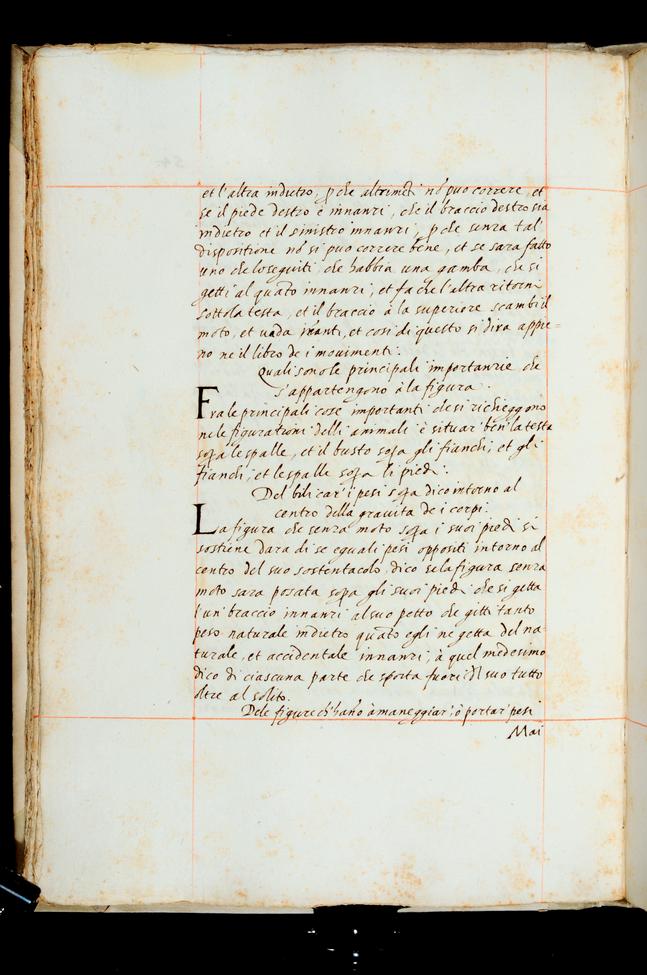 et l'altra indietro, p che altrimēti nō puo correre, et
se il piede destro è innanzi, che il braccio destro sia
indietro et il sinistro innanzi, p che senza tal'
dispositione nō si puo correre bene, et se sara fatto
uno che lo seguiti, che habbia una gamba, che si
getti al quāto innanzi, et fa che l'altra ritorni
sotto la testa, et il braccio à la superiore scambi il
moto, et uada inanti, et cosi di questo si dira appie=
no ne il libro de i mouimenti.
Quali sono le principali importanzie che
s'appartengono à la figura.
Fra le principali cose importanti che si richeggono
ne le figurationi delli animali è situar' ben' la testa
sopa le spalle, et il busto sopa gli fianchi, et gli
fianchi, et le spalle sopa li piedi.
Del bilicar' i pesi sopa dico intorno al
centro della grauita de i corpi.
La figura che senza moto sopa i suoi piedi si
sostiene dara di se equali pesi oppositi intorno al
centro del suo sostentacolo. dico se la figura senza
moto sara posata sopa gli suoi piedi che si getta
l'un' braccio innanzi al suo petto che gitti tanto
peso naturale indietro quāto egli ne getta del na
turale, et accidentale innanzi, à quel' medesimo
dico di ciascuna parte che sporta fuori dl suo tutto
oltre al solito.
Dele figure ch' hāno à maneggiar', ò portar' pesi
Mai